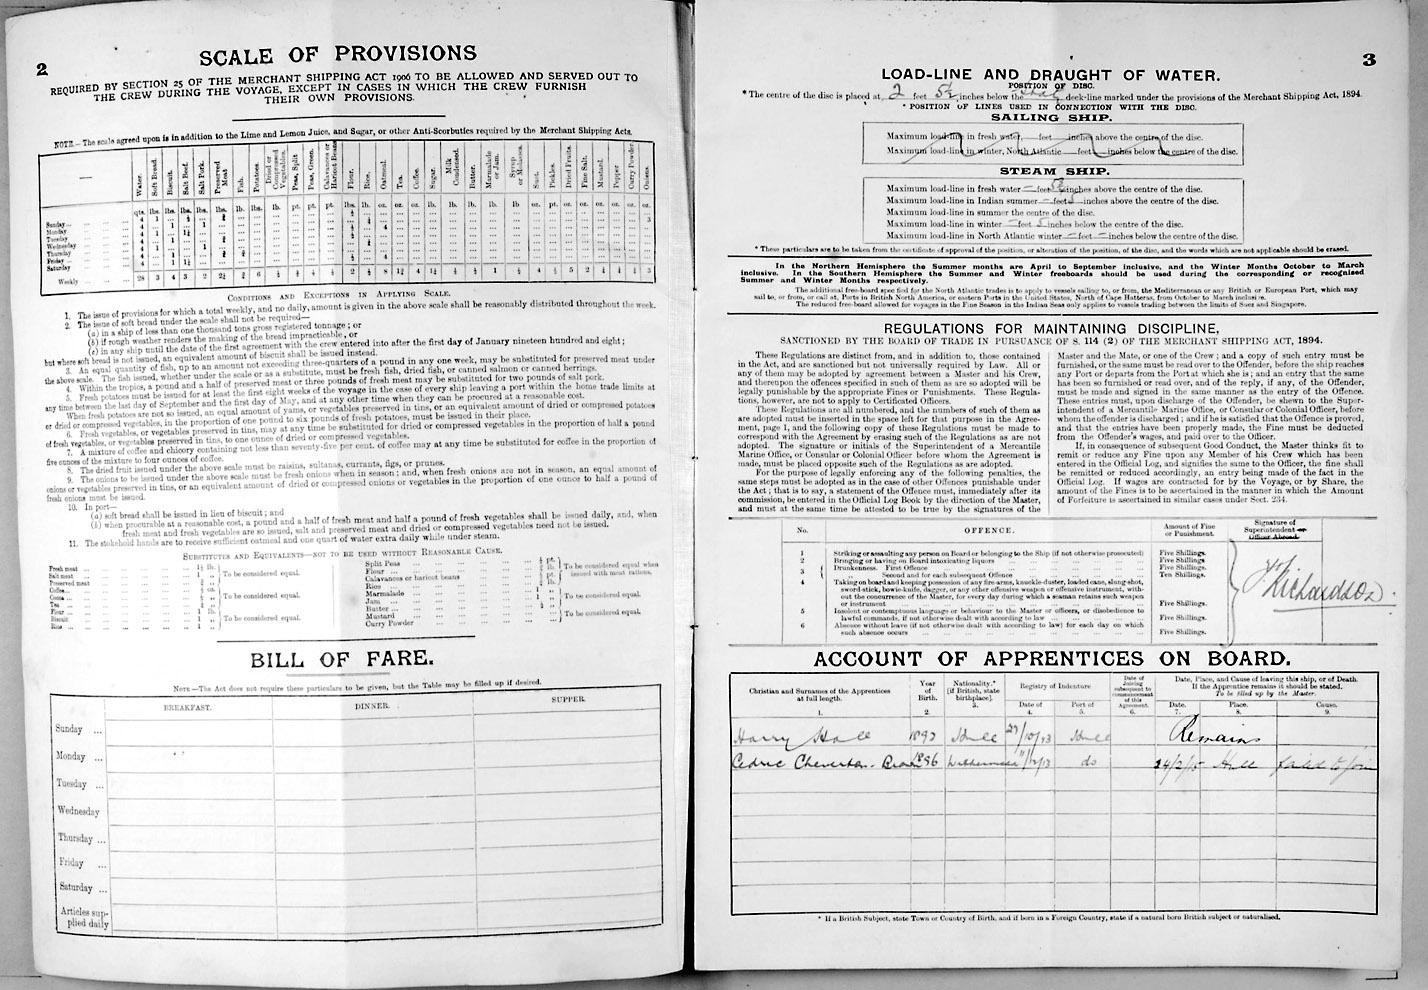 2
SCALE OF PROVISIONS
REQUIRED BY SECTION 25 OF THE MERCHANT SHIPPING ACT 1906 TO BE ALLOWED AND SERVED OUT TO
THE CREW DURING THE VOYAGE, EXCEPT IN CASES IN WHICH THE CREW FURNISH
THEIR OWN PROVISIONS.
NOTE.—The scale agreed upon is in addition to the Lime and Lemon Juice, and Sugar, or other Anti-Scorbutics required by the Merchant Shipping Acts.
Water. Soft Bread. Biscuit. Salt Beef. Salt Pork. Preserved Meat Fish. Potatoes. Dried or Compressed Vegetables. Peas, Split Peas, Green. Calavances or Haricot Beans Flour. Rice. Oatmeal. Tea. Coffee. Sugar. Milk Condensed. Butter. Marmalade or Jam. Syrup or Molasses. Suet. Pickles. Dried Fruits. Fine Salt. Mustard. Pepper Curry Powder. Onions.
Sunday
Monday
Tuesday
Wednesday
Thursday
Friday
Saturday
Weekly
CONDITIONS AND EXCEPTIONS IN APPLYING SCALE.
1. The issue of provisions for which a total weekly, and no daily, amount is given in the above scale shall be reasonably distributed throughout the week.
2. The issue of soft bread under the scale shall not be required—
(a) in a ship of less than one thousand tons gross registered tonnage; or
(b) if rough weather renders the making of the bread impracticable, or
(c) in any ship until the date of the first agreement with the crew entered into after the first day of January nineteen hundred and eight;
but where soft bread is not issued, an equivalent amount of biscuit shall be issued instead.
3. An equal quantity of fish, up to an amount not exceeding three-quarters of a pound in any one week, may be substituted for preserved meat under
the above scale. The fish issued, whether under the scale or as a substitute, must be fresh fish, dried fish, or canned salmon or canned herrings.
4. Within the tropics, a pound and a half of preserved meat or three pounds of fresh meat may be substituted for two pounds of salt pork.
5. Fresh potatoes must be issued for at least the first eight weeks of the voyage in the case of every ship leaving a port within home trade limits at
any time between the last day of September and the first day of May, and at any other time when they can be procured at a reasonable cost.
When fresh potatoes are not so issued, an equal amount of yams, or vegetables preserved in tins, or an equivalent amount of dried or compressed potatoes
or dried or compressed vegetables, in the proportion of one pound to six pounds of fresh potatoes, must be issued in their place.
6. Fresh vegetables, or vegetables preserved in tins, may at any time be substituted for dried or compressed vegetables in the proportion of half a pound
of fresh vegetables, or vegetables preserved in tins, to one ounce of dried or compressed vegetables.
7. A mixture of coffee and chicory containing not less than seventy-five per cent. of coffee may at any time be substituted for coffee in the proportion of
five ounces of the mixture to four ounces of coffee.
8. The dried fruit issued under the above scale must be raisins, sultanas, currants, figs, or prunes.
9. The onions to be issued under the above scale must be fresh onions when in season; and, when fresh onions are not in season, an equal amount of
onions or vegetables preserved in tins, or an equivalent amount of dried or compressed onions or vegetables in the proportion of one ounce to half a pound of
fresh onions must be issued.
10. In port—
(a) soft bread shall be issued in lieu of biscuit; and
(b) when procurable at a reasonable cost, a pound and a half of fresh meat and half a pound of fresh vegetables shall be issued daily, and, when
fresh meat and fresh vegetables are so issued, salt and preserved meat and dried or compressed vegetables need not be issued.
11. The stokehold hands are to receive sufficient oatmeal and one quart of water extra daily while under steam.
SUBSTITUTES AND EQUIVALENTS—NOT TO BE USED WITHOUT REASONABLE CAUSE.
Fresh meat
Salt meat
Preserved meat
To be considered equal.
Coffee
Cocoa
Tea
To be considered equal.
Flour
Biscuit
Rice
To be considered equal.
Split Peas
Flour
Calavances or haricot beans
Rice
To be considered equal when issued with meat rations.
Marmalade
Jam
Butter
To be considered equal.
Mustard
Curry Powder
To be considered equal.
BILL OF FARE.
NOTE—The Act does not require these particulars to be given, but the Table may be filled up if desired.
BREAKFAST. DINNER. SUPPER.
Sunday
Monday
Tuesday
Wednesday
Thursday
Friday
Saturday
Articles supplied daily
3
LOAD-LINE AND DRAUGHT OF WATER.
POSITION OF DISC.
* The centre of the disc is placed at 2 feet 5½ inches below the steel deck-line marked under the provisions of the Merchant Shipping Act, 1894.
* POSITION OF LINES USED IN CONNECTION WITH THE DISC.
SAILING SHIP.
Maximum load-line in fresh water, feet inches above the centre of the disc.
Maximum load-line in winter, North Atlantic feet inches below the centre of the disc.
STEAM SHIP.
Maximum load-line in fresh water — feet inches above the centre of the disc.
Maximum load-line in Indian summer — feet 5 inches above the centre of the disc.
Maximum load-line in summer the centre of the disc.
Maximum load-line in winter — feet 5 inches below the centre of the disc.
Maximum load-line in North Atlantic winter — feet — inches below the centre of the disc.
* These particulars are to be taken from the certificate of approval of the position, or alteration of the position, of the disc, and the words which are not applicable should be erased.
In the Northern Hemisphere the Summer months are April to September inclusive, and the Winter Months October to March
inclusive. In the Southern Hemisphere the Summer and Winter freeboards should be used during the corresponding or recognised
Summer and Winter Months respectively.
The additional free-board specified for the North Atlantic trades is to apply to vessels sailing to, or from, the Mediterranean or any British or European Port, which may
sail to, or from, or call at, Ports in British North America, or eastern Ports in the United States, North of Cape Hatteras, from October to March inclusive.
The reduced free-board allowed for voyages in the Fine Season in the Indian Seas only applies to vessels trading between the limits of Suez and Singapore.
REGULATIONS FOR MAINTAINING DISCIPLINE,
SANCTIONED BY THE BOARD OF TRADE IN PURSUANCE OF S. 114 (2) OF THE MERCHANT SHIPPING ACT, 1894.
These Regulations are distinct from, and in addition to, those contained
in the Act, and are sanctioned but not universally required by Law. All or
any of them may be adopted by agreement between a Master and his Crew,
and thereupon the offences specified in such of them as are so adopted will be
legally punishable by the appropriate Fines or Punishments. These Regulations,
however, are not to apply to Certificated Officers.
These Regulations are all numbered, and the numbers of such of them as
are adopted must be inserted in the space left for that purpose in the Agreement,
page 1, and the following copy of these Regulations must be made to
correspond with the Agreement by erasing such of the Regulations as are not
adopted. The signature or initials of the Superintendent of a Mercantile
Marine Office, or Consular or Colonial Officer before whom the Agreement is
made, must be placed opposite such of the Regulations as are adopted.
For the purpose of legally enforcing any of the following penalties, the
same steps must be adopted as in the case of other Offences punishable under
the Act; that is to say, a statement of the Offence must, immediately after its
commission, be entered in the Official Log Book by the direction of the Master,
and must at the same time be attested to be true by the signatures of the
Master and the Mate, or one of the Crew; and a copy of such entry must be
furnished, or the same must be read over to the Offender, before the ship reaches
any Port or departs from the Port at which she is; and an entry that the same
has been so furnished or read over, and of the reply, if any, of the Offender,
must be made and signed in the same manner as the entry of the Offence.
These entries must, upon discharge of the Offender, be shewn to the Superintendent
of a Mercantile Marine Office, or Consular or Colonial Officer, before
whom the offender is discharged; and if he is satisfied that the Offence is proved,
and that the entries have been properly made, the Fine must be deducted
from the Offender's wages, and paid over to the Officer.
If, in consequence of subsequent Good Conduct, the Master thinks fit to
remit or reduce any Fine upon any Member of his Crew which has been
entered in the Official Log, and signifies the same to the Officer, the fine shall
be remitted or reduced accordingly, an entry being made of the fact in the
Official Log. If wages are contracted for by the Voyage, or by Share, the
amount of the Fines is to be ascertained in the manner in which the Amount
of Forfeiture is ascertained in similar cases under Sect. 234.
No. OFFENCE. Amount of Fine or Punishment. Signature of Superintendent or Officer Abroad.
1 Striking or assaulting any person on Board or belonging to the Ship (if not otherwise prosecuted) Five Shillings.
2 Bringing or having on Board intoxicating liquors Five Shillings.
3 Drunkenness. First Offence Five Shillings.
Second and for each subsequent Offence Ten Shillings.
4 Taking on board and keeping possession of any fire-arms, knuckle-duster, loaded cane, slung-shot,
sword-stick, bowie-knife, dagger, or any other offensive weapon or offensive instrument, without
the concurrence of the Master, for every day during which a seaman retains such weapon
or instrument Five Shillings.
5 Insolent or contemptuous language or behaviour to the Master or officers, or disobedience to
lawful commands, if not otherwise dealt with according to law Five Shillings.
6 Absence without leave (if not otherwise dealt with according to law) for each day on which
such absence occurs Five Shillings.
Richardson
ACCOUNT OF APPRENTICES ON BOARD.
Christian and Surnames of the Apprentices at full length. 1.
Year of Birth. 2.
Nationality.* [if British, state birthplace]. 3.
Registry of Indenture
Date of 4.
Port of 5.
Date of Joining subsequent to commencement of this Agreement. 6.
Date, Place, and Cause of leaving this ship, or of Death.
If the Apprentice remains it should be stated.
To be filled up by the Master.
Date. 7. Place. 8. Cause. 9.
Harry Hall 1897 Hull 27/10/13 Hull Remains
Cedric Cheverton-Brown 1896 11/12/13 do 24/2/15 Hull failed to join
* If a British Subject, state Town or Country of Birth, and if born in a Foreign Country, state if a natural born British subject or naturalised.